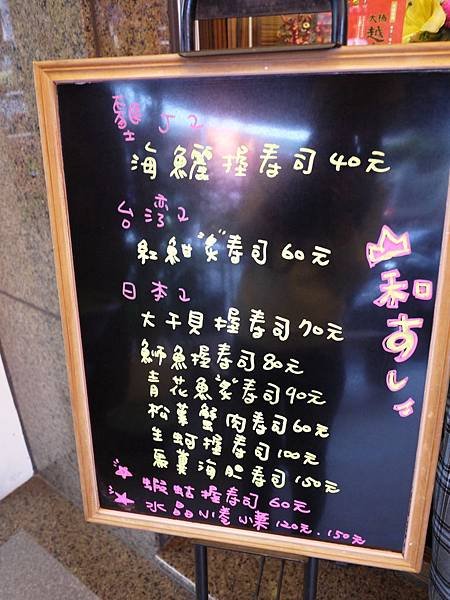 大橋
越
海鱺握寿司 40元
台湾2
紅魽炙寿司 60元
日本2
大干貝握寿司70元
鰤魚握寿司80元
青花魚炙寿司90元
松葉蟹肉寿司60元
生蚵握寿司100元
馬糞海胆寿司150元
蝦蛄握寿司60元
水晶小卷 120元.150元
和すし